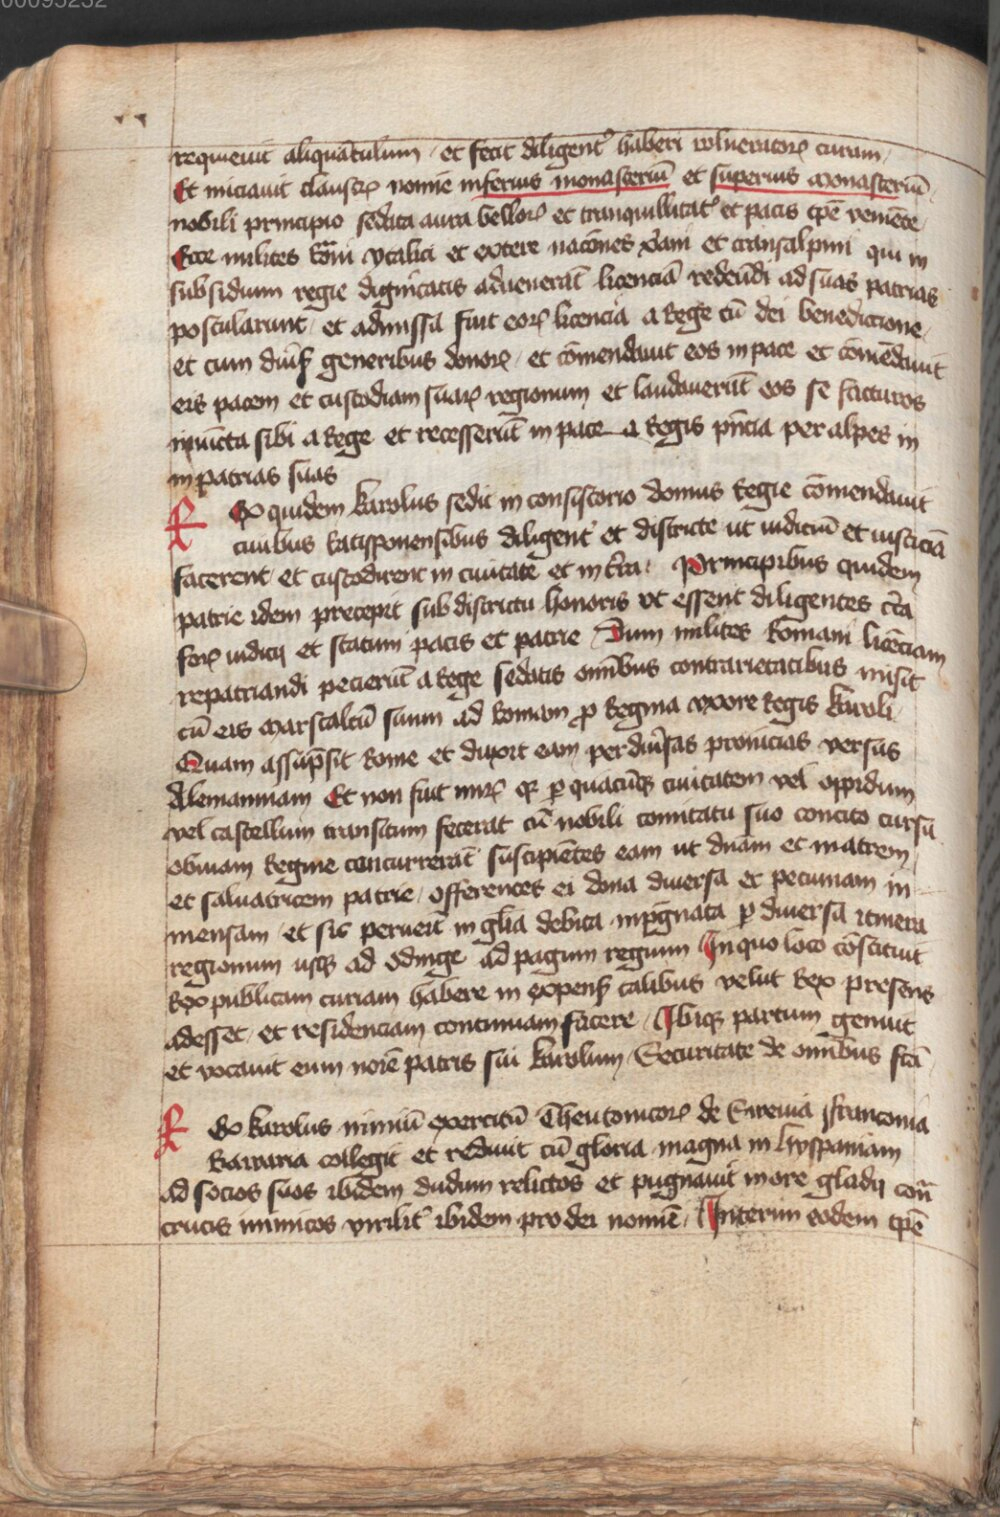 00095232
requieuit aliquātulum / et fecit diligent᷒ haberi wlneratoꝝ curam /
Et iniciauit claustꝝ nomīe inferius monasteriū et superius monasteriū /
nobili principio sedata aura belloꝝ et tranquillitat᷒ et pacis tp̄e veniēte /
Ecce milites Ro͞ni ytalici et extere nacōnes xp̄iani et transalpini qui in
subsidium regie dignitatis aduenerāt licenciā redeūdi ad suas patrias
postularunt / et admissa fuit eoꝝ licencia a Rege cū dei benediccione /
et cum diu̾sꝭ generibus donoꝝ / et cōmendauit eos in pace et cōmēdauit
eis pacem et custodiam suaꝝ regionum et laudauerūt eos se facturos
iniūcta sibi a Rege et recesserūt in pace a Regis pn̄cia per alpes in
in patrias suas
Rex quidem karolus sedit in consistorio domus Regie cōmendauit
ciuibus Ratisponensibus diligent᷒ et districte ut iudiciū et iusticiā
facerent et custodirent in ciuitate et in t̾ra / Principibus quidem
patrie idem precepit sub districtu honoris ut essent diligentes c̾ca
foꝝ iudicij et statum pacis et patrie Dum milites Romani licēciam
repatriandi pecierūt a Rege sedatis om̄ibus contrarietatibus misit
cū eis marscalcū suum ad Romam ꝓ Regina vxore Regis karoli /
Quam assūpsit Rome et duxit eam per diu̾sas prouīcias versus
Alemanniam Et non fuit miꝝ qꝫ ꝑ quacūqꝫ ciuitatem vel oppidum
vel castellum transitum fecerat cū nobili comitatu suo concito cursu
obuiam Regine concurrerāt suscipiētes eam ut dn̄am et matrem /
et saluatricem patrie / offerentes ei dona diuersa et pecuniam in
mensam / et sic peruēit in gl̄ia debita inp̄gnata ꝑ diuersa itinera
regionum usqꝫ ad Odinge ad pagum regium In quo loco cōstituit
Rex publicam curiam habere in expensꝭ talibus velut Rex presens
adesset / et residenciam continuam facere / Ibiqꝫ partum genuit
et vocauit eum noīe patris sui karolum / Securitate de omībus fcā
Rex karolus nimiū exercitū Theutonicoꝝ de Sweuia franconia
Bawaria collegit et rediuit cū gloria magna in hyspaniam
ad socios suos ibidem dudum relictos et pugnauit in ore gladij cont᷑
crucis inimicos virilit᷒ ibidem pro dei nomīe / Interim eodem tp̄e